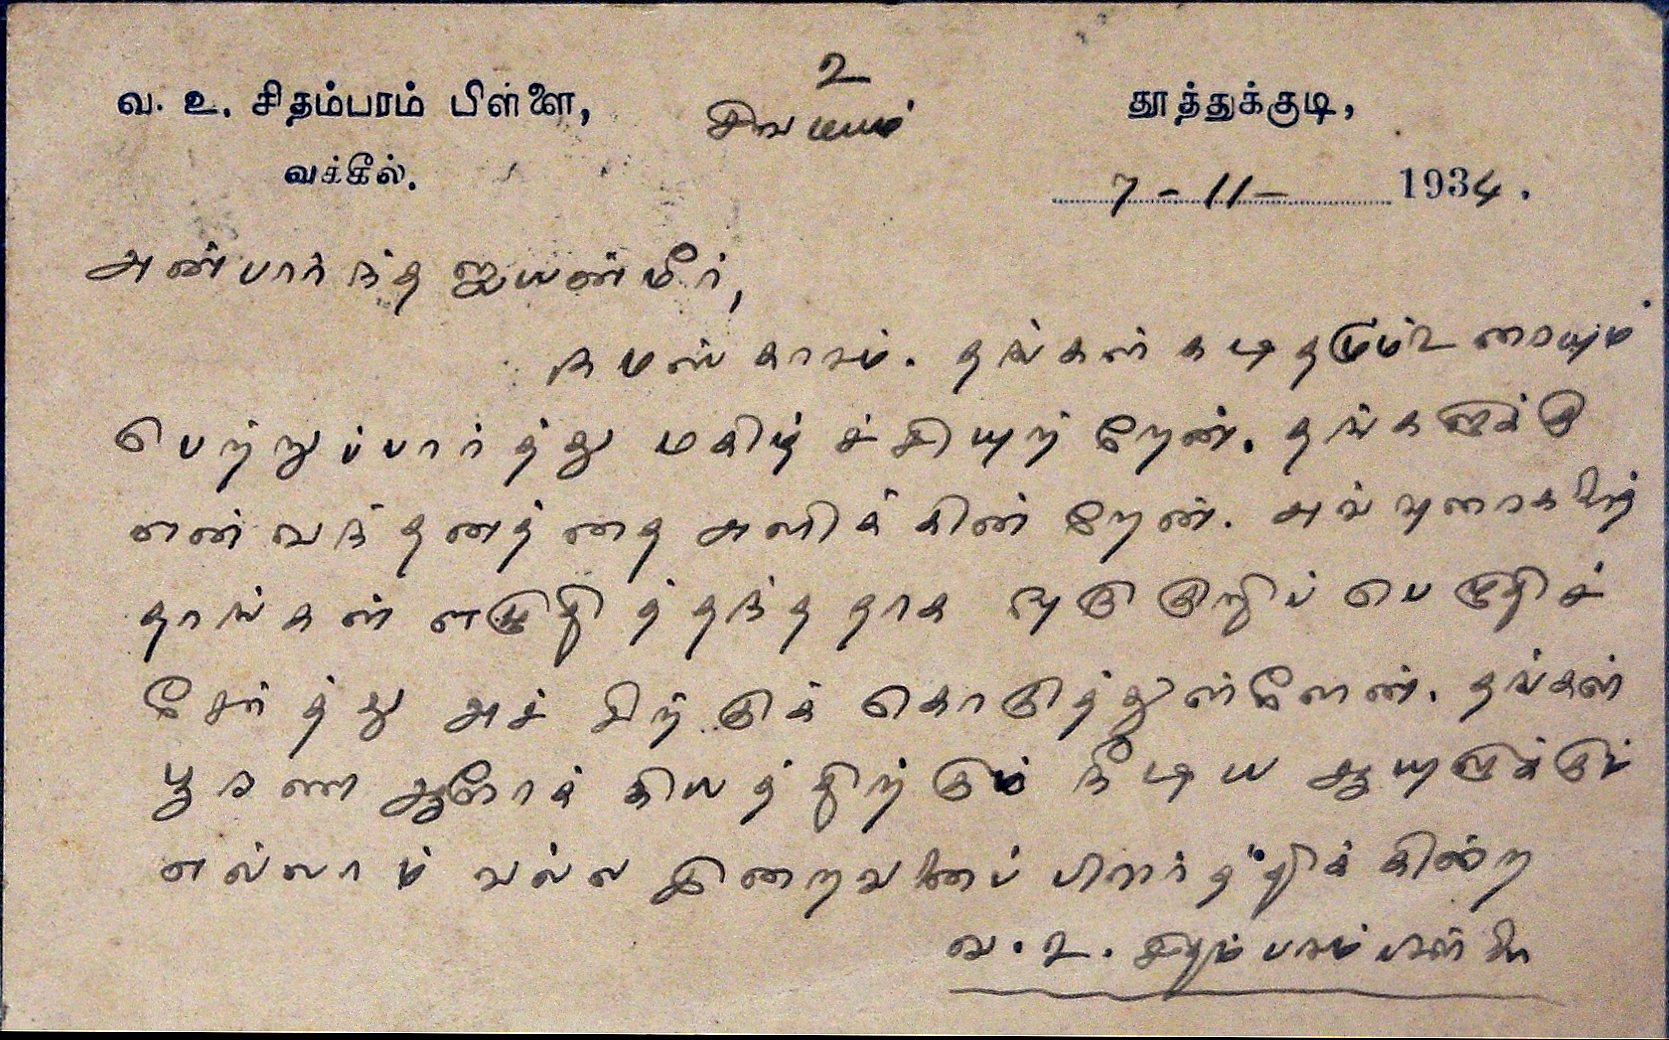 உ
வ. உ. சிதம்பரம் பிள்ளை, சிவமயம் தூத்துக்குடி,
வக்கீல். 7-11-1934.
அன்பார்ந்த ஐயன்மீர்,
நமஸ்காரம். தங்கள் கடிதமும் உரையும்
பெற்றுப்பார்த்து மகிழ்ச்சியுற்றேன். தங்களுக்கு
என் வந்தனத்தை அளிக்கின்றேன். அவ்வுரை
தாங்கள் எழுதித்தந்ததாக ஒரு குறிப்பெழுதிச்
சேர்த்து அச்சிற்குக் கொடுத்துள்ளேன். தங்கள்
பூரண ஆரோக்கியத்திற்கும் நீடிய ஆயுளுக்கும்
எல்லாம் வல்ல இறைவனைப் பிரார்த்திக்கின்ற
வ. உ. சிதம்பரம்பிள்ளை